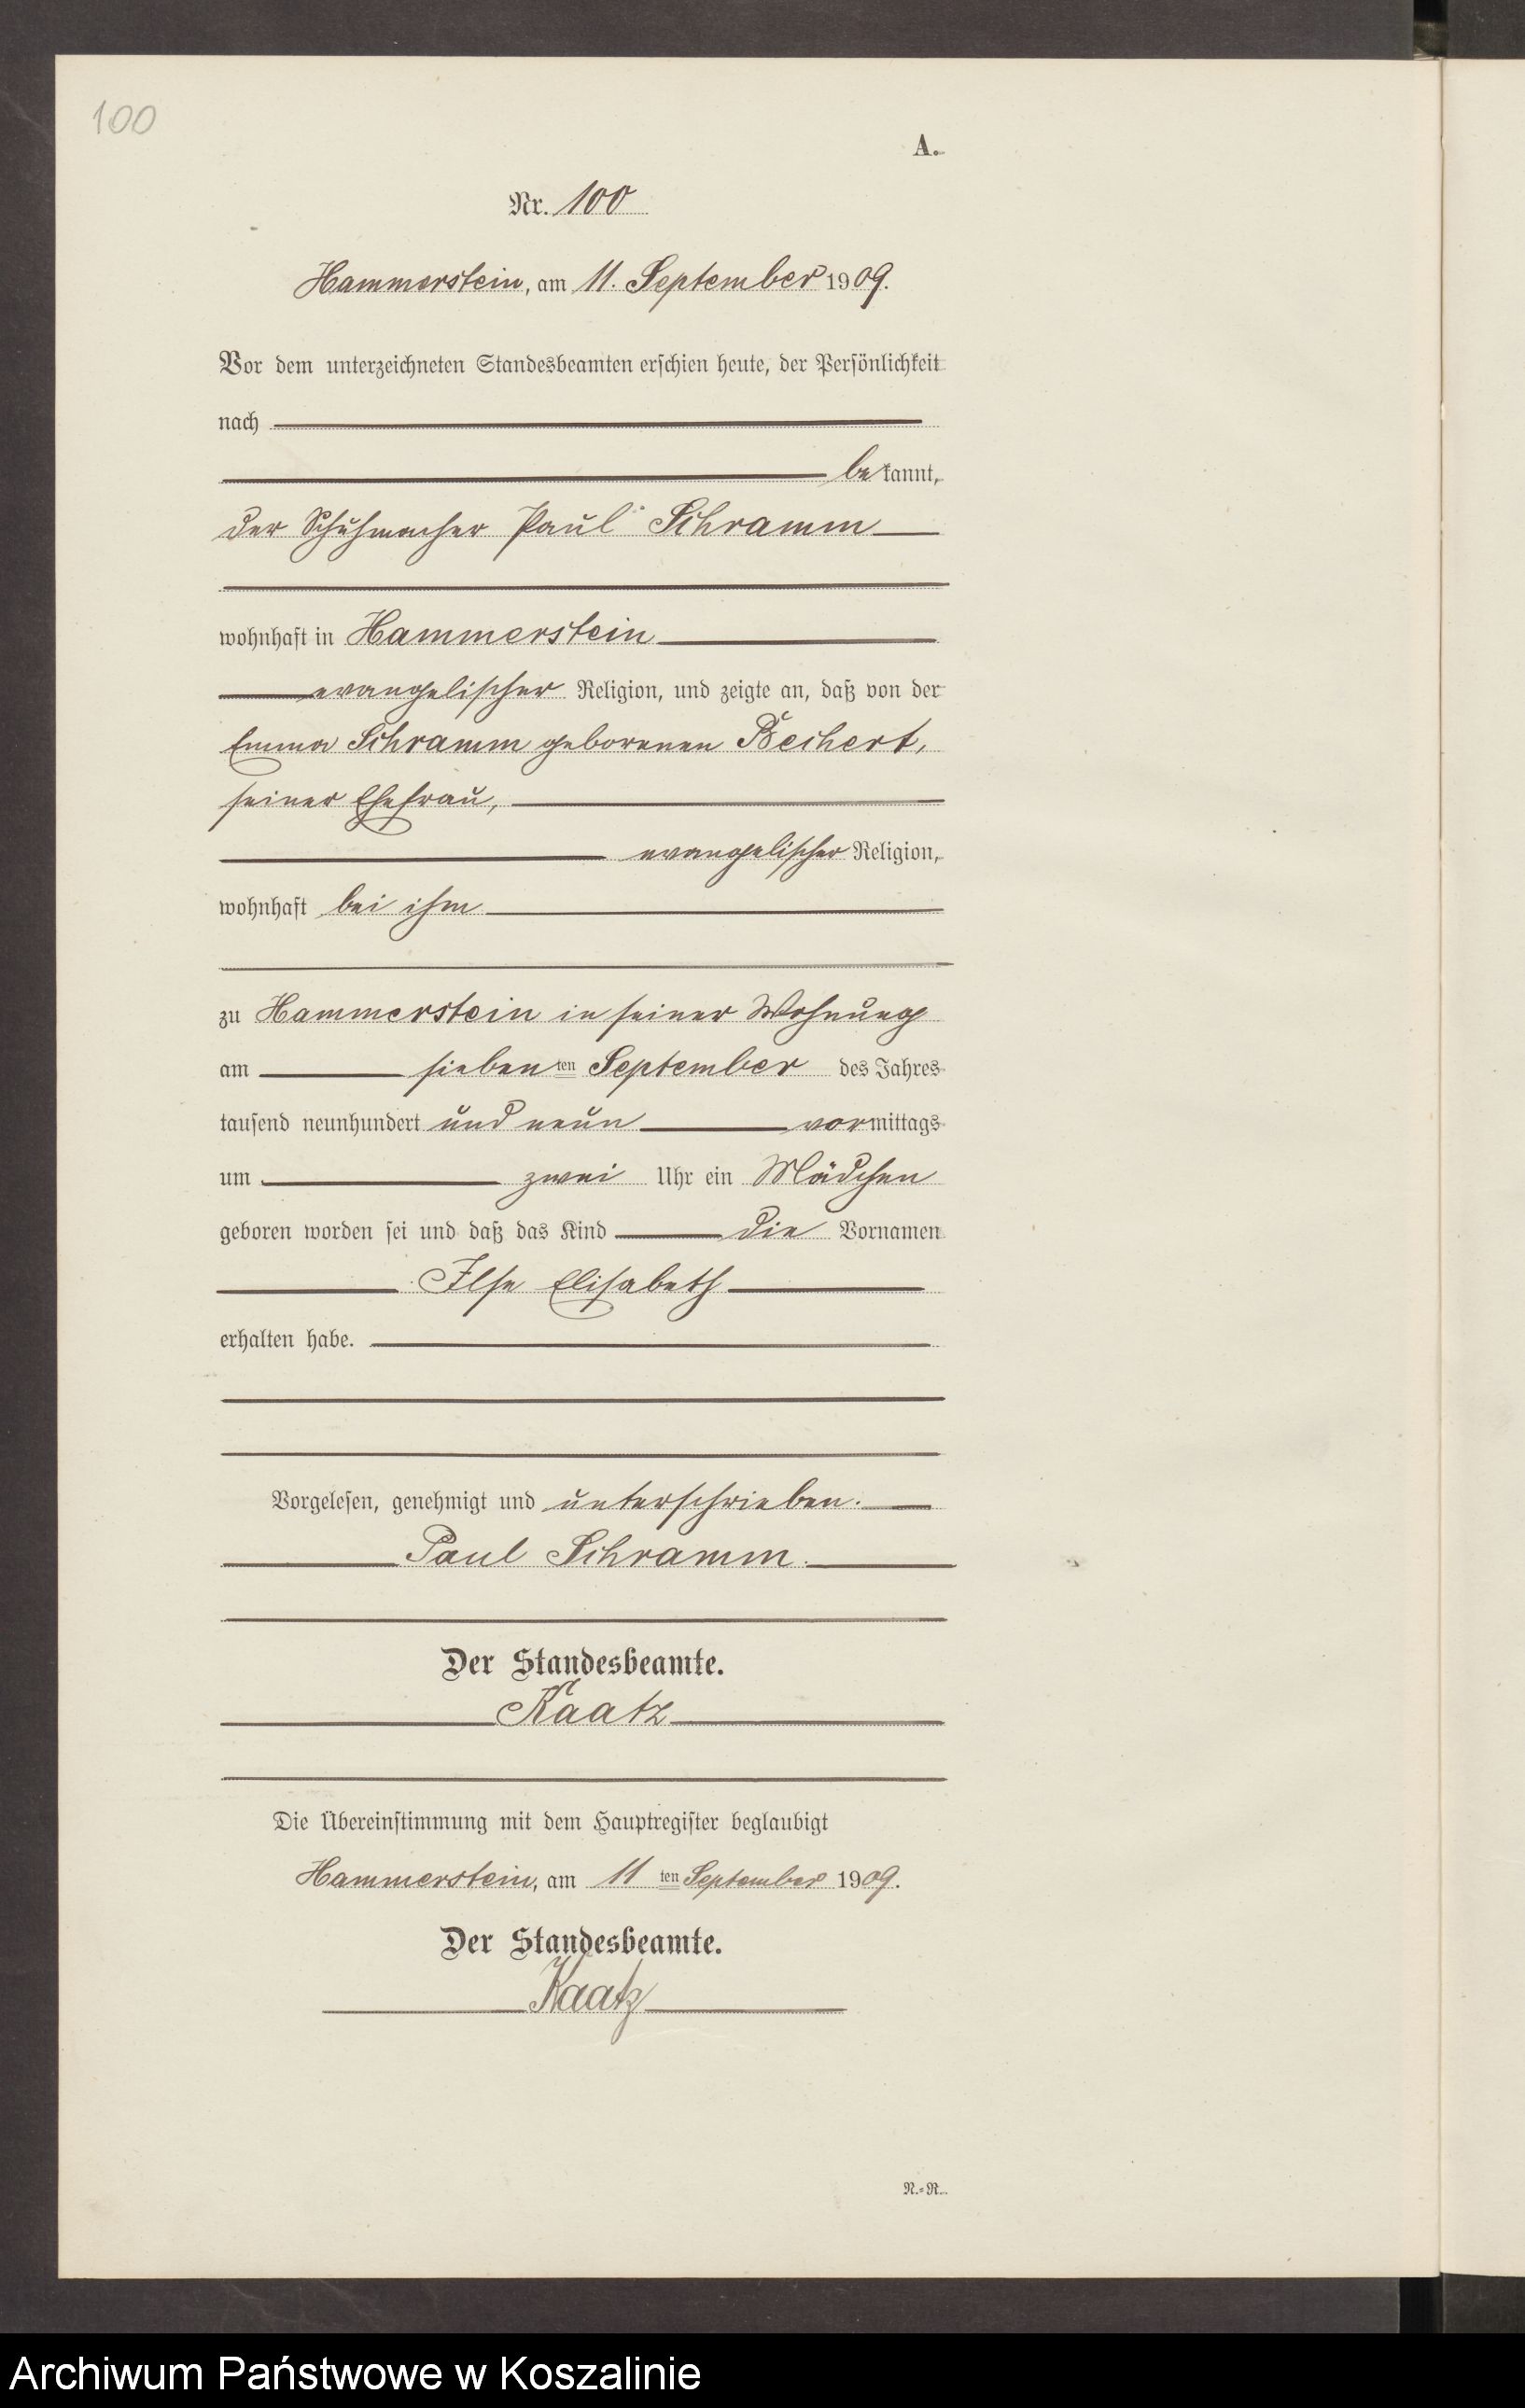 100
A.
Nr. 100
Hammerstein, am 11. September 1909.
Vor dem unterzeichneten Standesbeamten erschien heute, der Persönlichkeit
nach
bekannt,
der Schuhmacher Paul Schramm
wohnhaft in Hammerstein
evangelischer Religion, und zeigte an, daß von der
Emma Schramm geborenen Bechert,
seiner Ehefrau,
evangelischer Religion,
wohnhaft bei ihm
zu Hammerstein in seiner Wohnung
am siebenten September des Jahres
tausend neunhundert und neun vormittags
um zwei Uhr ein Mädchen
geboren worden sei und daß das Kind die Vornamen
Ilse Elisabeth
erhalten habe.
Vorgelesen, genehmigt und unterschrieben.
Paul Schramm.
Der Standesbeamte.
Kaatz
Die Übereinstimmung mit dem Hauptregister beglaubigt
Hammerstein, am 11ten September 1909.
Der Standesbeamte.
Kaatz
N.-R.
Archiwum Państwowe w Koszalinie